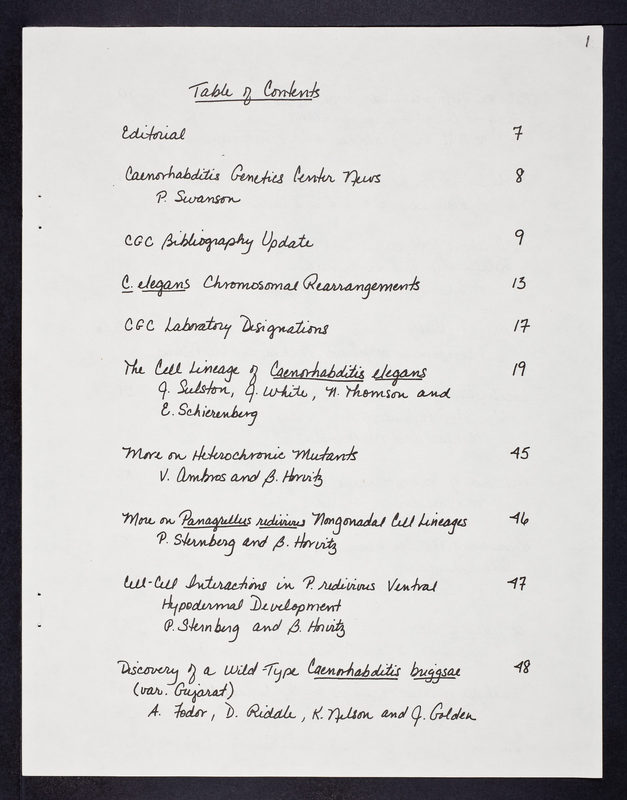 1
Table of Contents
Editorial 7
Caenorhabditis Genetics Center News 8
P. Swanson
CGC Bibliography Update 9
C. elegans Chromosomal Rearrangements 13
CGC Laboratory Designations 17
The Cell Lineage of Caenorhabditis elegans 19
J. Sulston, J. White, N. Thomson and
E. Schierenberg
More on Heterochronic Mutants 45
V. Ambros and B. Horvitz
More on Panagrellus redivivus Nongonadal Cell Lineages 46
P. Sternberg and B. Horvitz
Cell-Cell Interactions in P. redivivus Ventral 47
Hypodermal Development
P. Sternberg and B. Horvitz
Discovery of a Wild-Type Caenorhabditis briggsae 48
(var. Gujarat)
A. Fodor, D. Riddle, K. Nelson and J. Golden